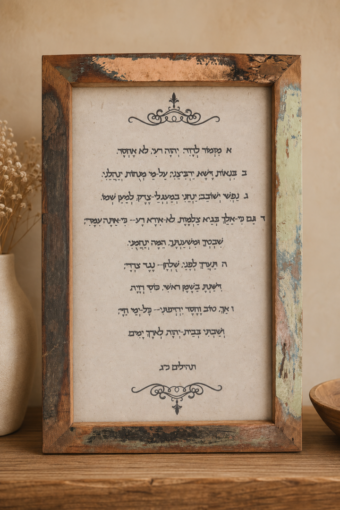 א מזמור לדוד: יהוה רעי, לא אחסר.
ב בנאות דשא, ירביצני; על-מי מנוחות ינהלני.
ג נפשי ישובב; ינחני במעגלי-צדק, למען שמו.
ד גם כי-אלך בגיא צלמות, לא-אירא רע— כי-אתה עמדי:
שבטך ומשענתך, המה ינחמני.
ה תערך לפני, שלחן— נגד צררי;
דשנת בשמן ראשי, כוסי
ו אך, טוב וחסד כל-ימי
ושבתי בבית-יהוה, לארך ימים.
תהילים כ"ג